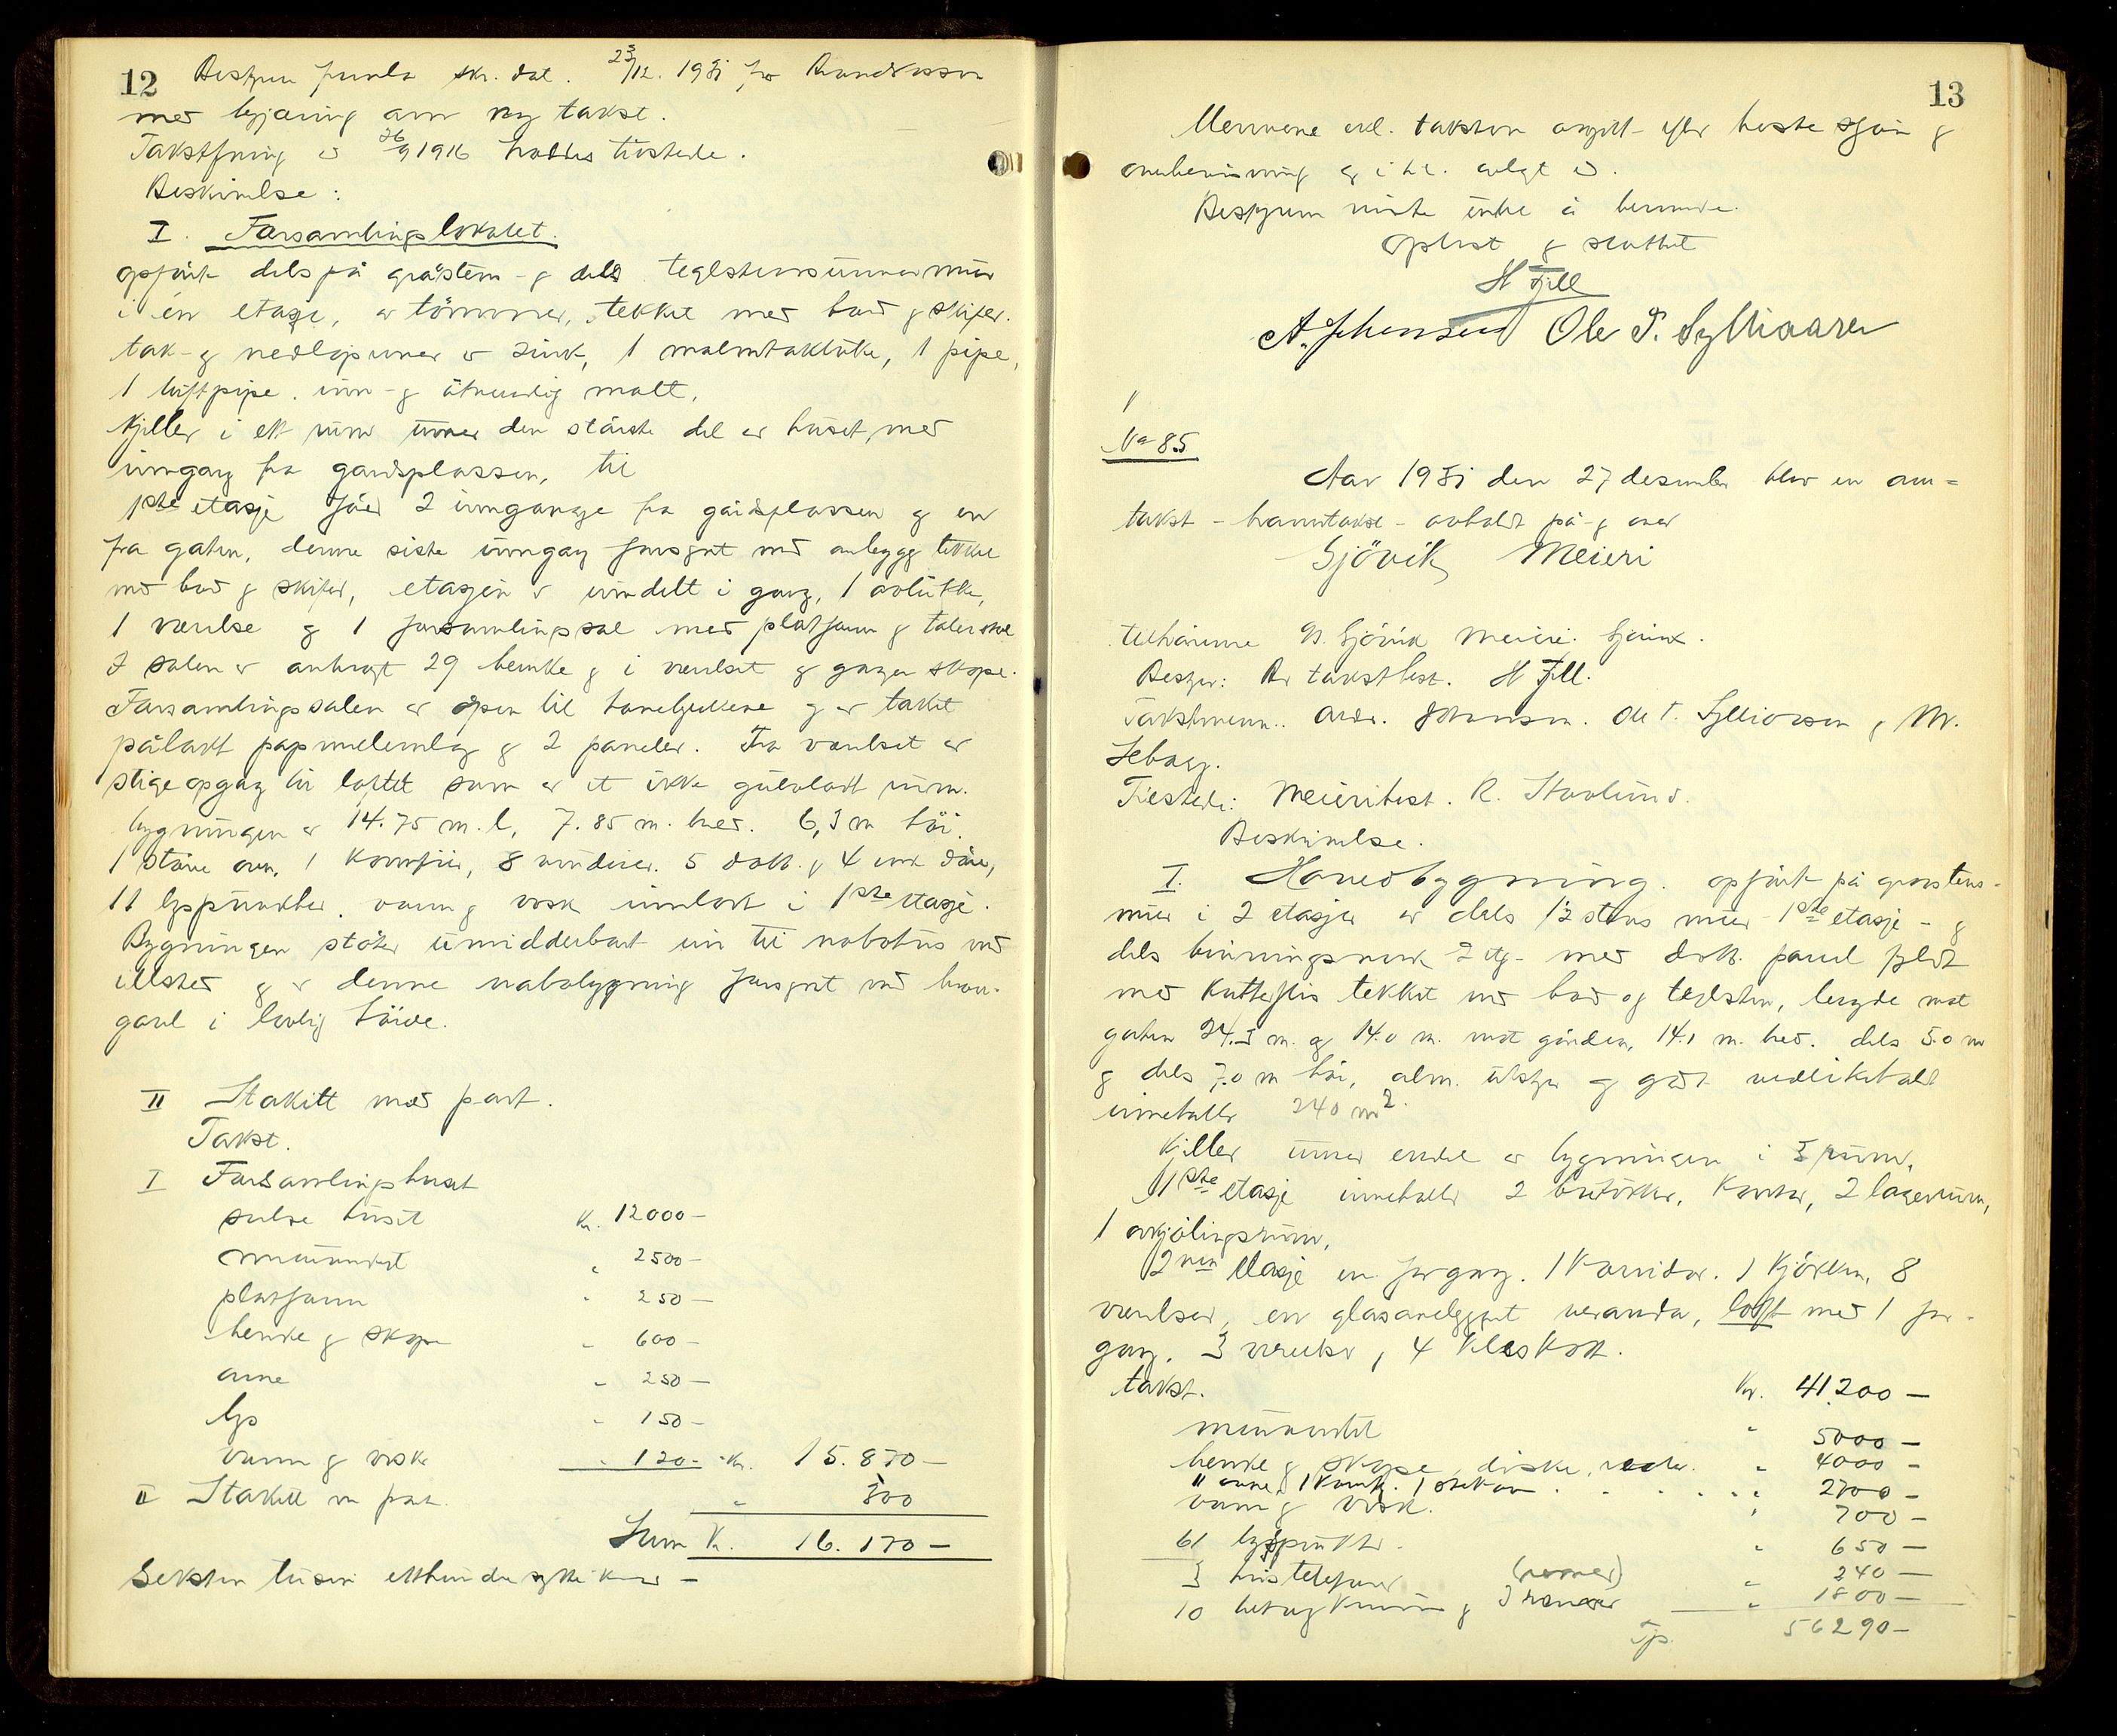 12 Bestyrer fremla skr. dat. 23/12. 1931 fra
med begjæring om ny takst.
Takstforretning av 26/9 1916 holdtes tilstede.
Beskrivelse:
I. Forsamlingslokalet.
opført dels på gråsten- og dels teglstensgrunnmur
i én etasje, av tømmer, tekket med bord og skifer.
tak- og nedløpsrenner av zink, 1 malmtakluke, 1 pipe,
1 luftpipe. inn- og utvendig malt.
Kjeller i ett rum under den største del av huset, med
inngang fra gårdsplassen, til
1ste etasje fører 2 innganger fra gårdsplassen og en
fra gaten, denne siste inngang forsynt med anbygg tekket
med bord og skifer, etasjen er inndelt i gang, 1 avlukke,
1 værelse og 1 forsamlingssal med platform og talerstol
I salen er anbragt 29 benke og i værelset og gangen skape.
Forsamlingssalen er åpen til hanebjelkene og er taket
pålagt papmellemlag og 2 paneler. Fra værelset er
stigeopgang til loftet som er et ikke gulvlagt rum.
bygningen er 14.75 m. l, 7.85 m. bred. 6,3 m høi.
1 større ovn, 1 komfyr, 8 vinduer. 5 dobb. og 4 enk. døre,
11 lyspunkter. vann og vask innlagt i 1ste etasje.
Bygningen støter umiddelbart inn til nabohus ved
ildsted og er denne nabobygning forsynt med brann-
gavl i lovlig høide.
II Stakitt med port.
Takst.
I Forsamlingshuset
selve huset Kr. 12000 -
murverket " 2500 -
platform " 250 -
benke og skape " 600 -
ovne " 250 -
lys " 150 -
vann og vask " 120 - Kr. 15.870 -
II Stakitt m port " 300
Sum Kr. 16.170 -
Seksten tusen etthundre og sytti kroner -
13
Mennene erkl. taksten avgitt efter beste skjøn og
overbevisning og i hh. avlagt ed.
Bestyrer visste intet å bemerke.
Oplest og sluttet
H Fjell
A. Johansen Ole T. Sylliaasen
1
No 85
Aar 1931 den 27 desember blev en om-
takst - branntakst - avholdt på og over
Gjövik Meieri
tilhörende A/S. Gjövik Meieri. Gjövik.
Bestyr: Br takstbest. H Fjell.
Takstmenn: Andr. Johansen. Ole T. Sylliaasen og M.
Seberg.
Tilstede: Meieribest. R.
Beskrivelse.
I. Hovedbygning. opført på gråstens-
mur i 2 etasjer av dels 1½ stens mur - 1ste etasje - og
dels bindingsverk 2 etg - med dobb. panel fyldt
med kutterflis tekket med bord og teglsten, lengde mot
gaten 24.3 m. og 14.0 m. mot gården, 14.1 m. bred. dels 5.0 m
og dels 7.0 m høi, alm. utstyr og godt vedlikeholdt
inneholder 240 m2.
Kjeller under endel av bygningen i 3 rum,
1ste etasje inneholder 2 butikker, kontor, 2 lagerrum,
1 avkjölingsrum,
2nen etasje en forgang. 1 korridor. 1 kjökken, 8
værelser, en glasanlegget veranda, loft med 1 for-
gang. 3 værelser, 4 kleskott.
takst. Kr. 41.200 -
murverket " 5000 -
benke og skape, diske, reoler. " 4000 -
11 ovne, 1 komf. 1 stekeovn " 2700 -
vann og vask. " 700 -
61 lyspunkter. " 650 -
3 hustelefoner " 240 -
10 og 3 " 1800 -
Tp. 56290 -